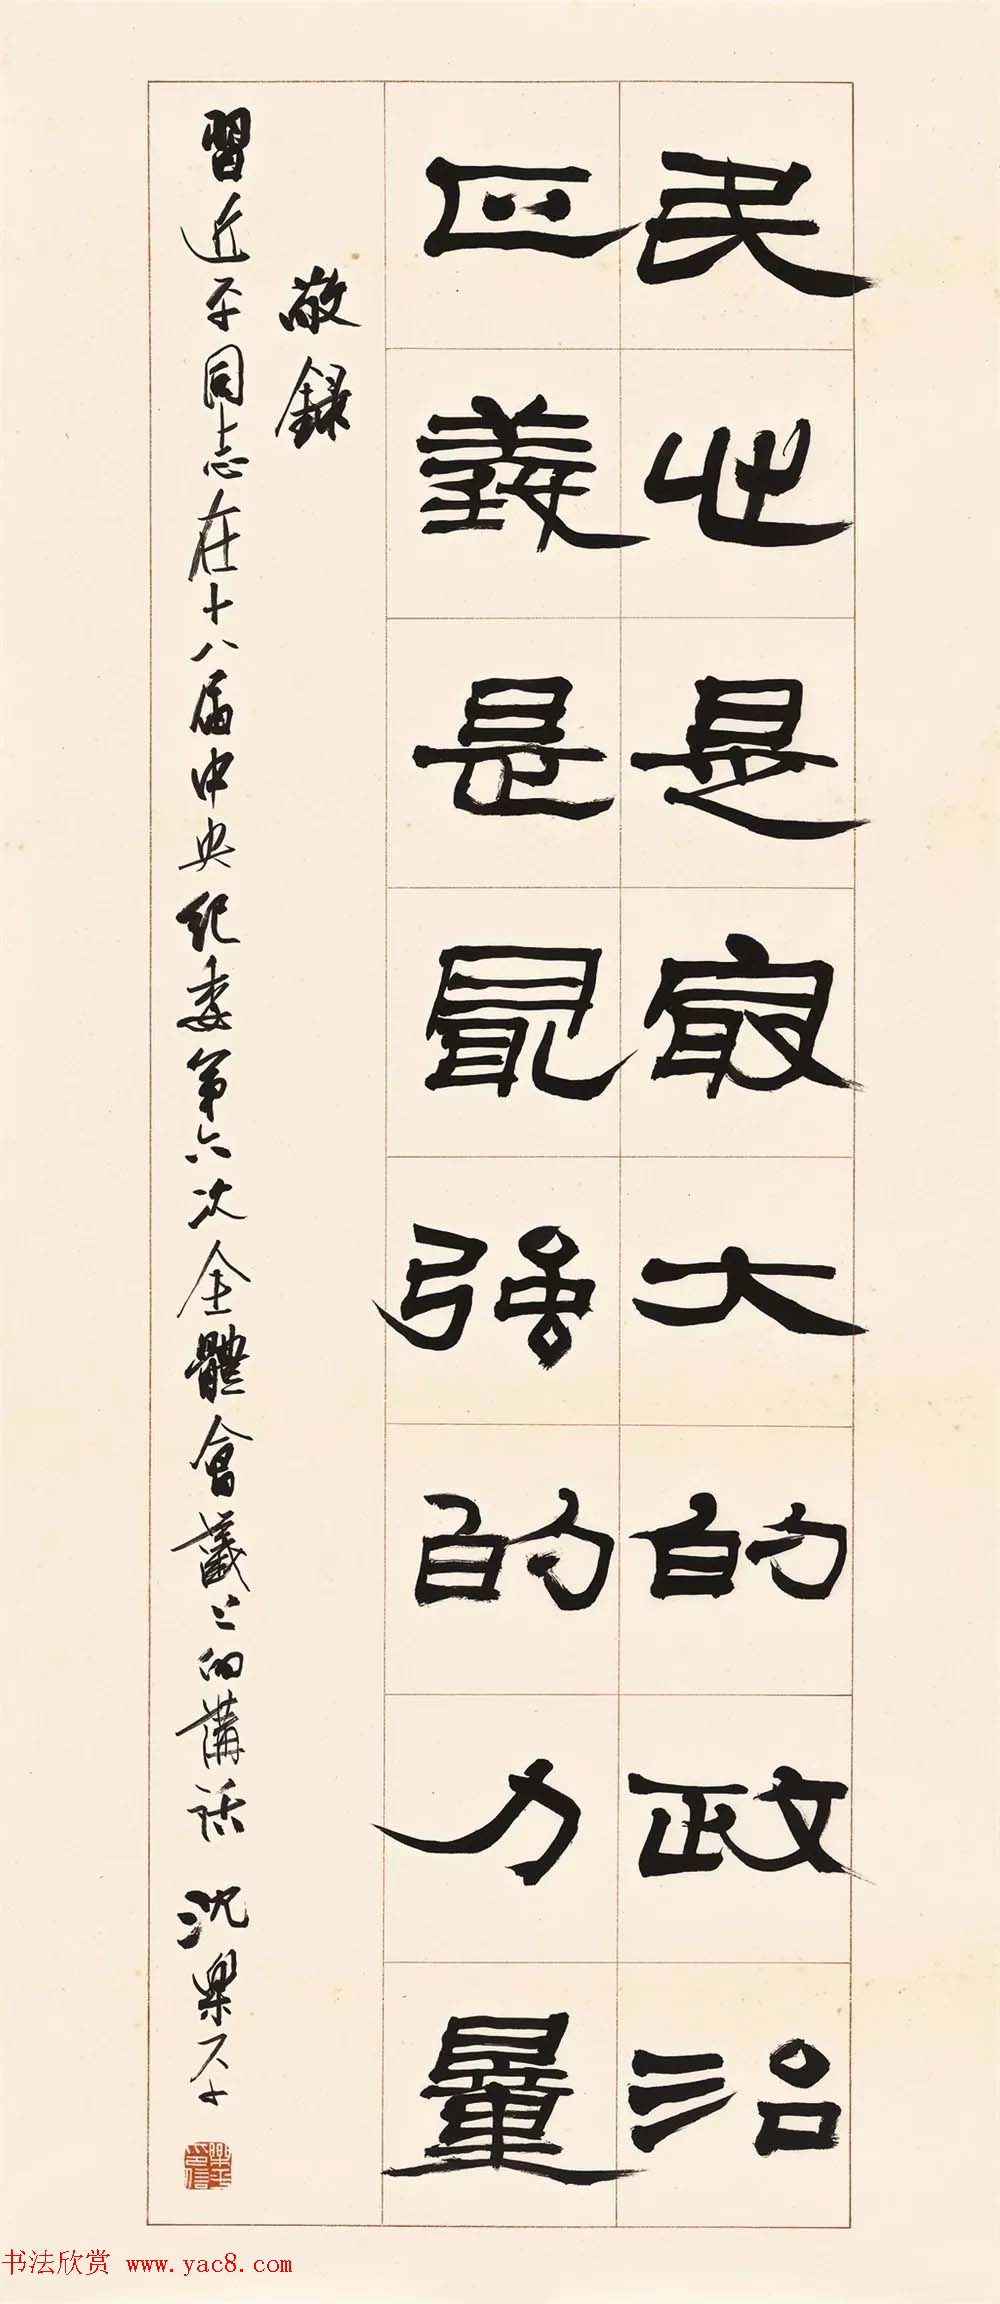 民心是最大的政治
正義是最強的力量
敬錄
習近平同志在十八届中央紀委第六次全體會議上的講話 沈樂平
樂平印信
书法欣赏 www.yac8.com